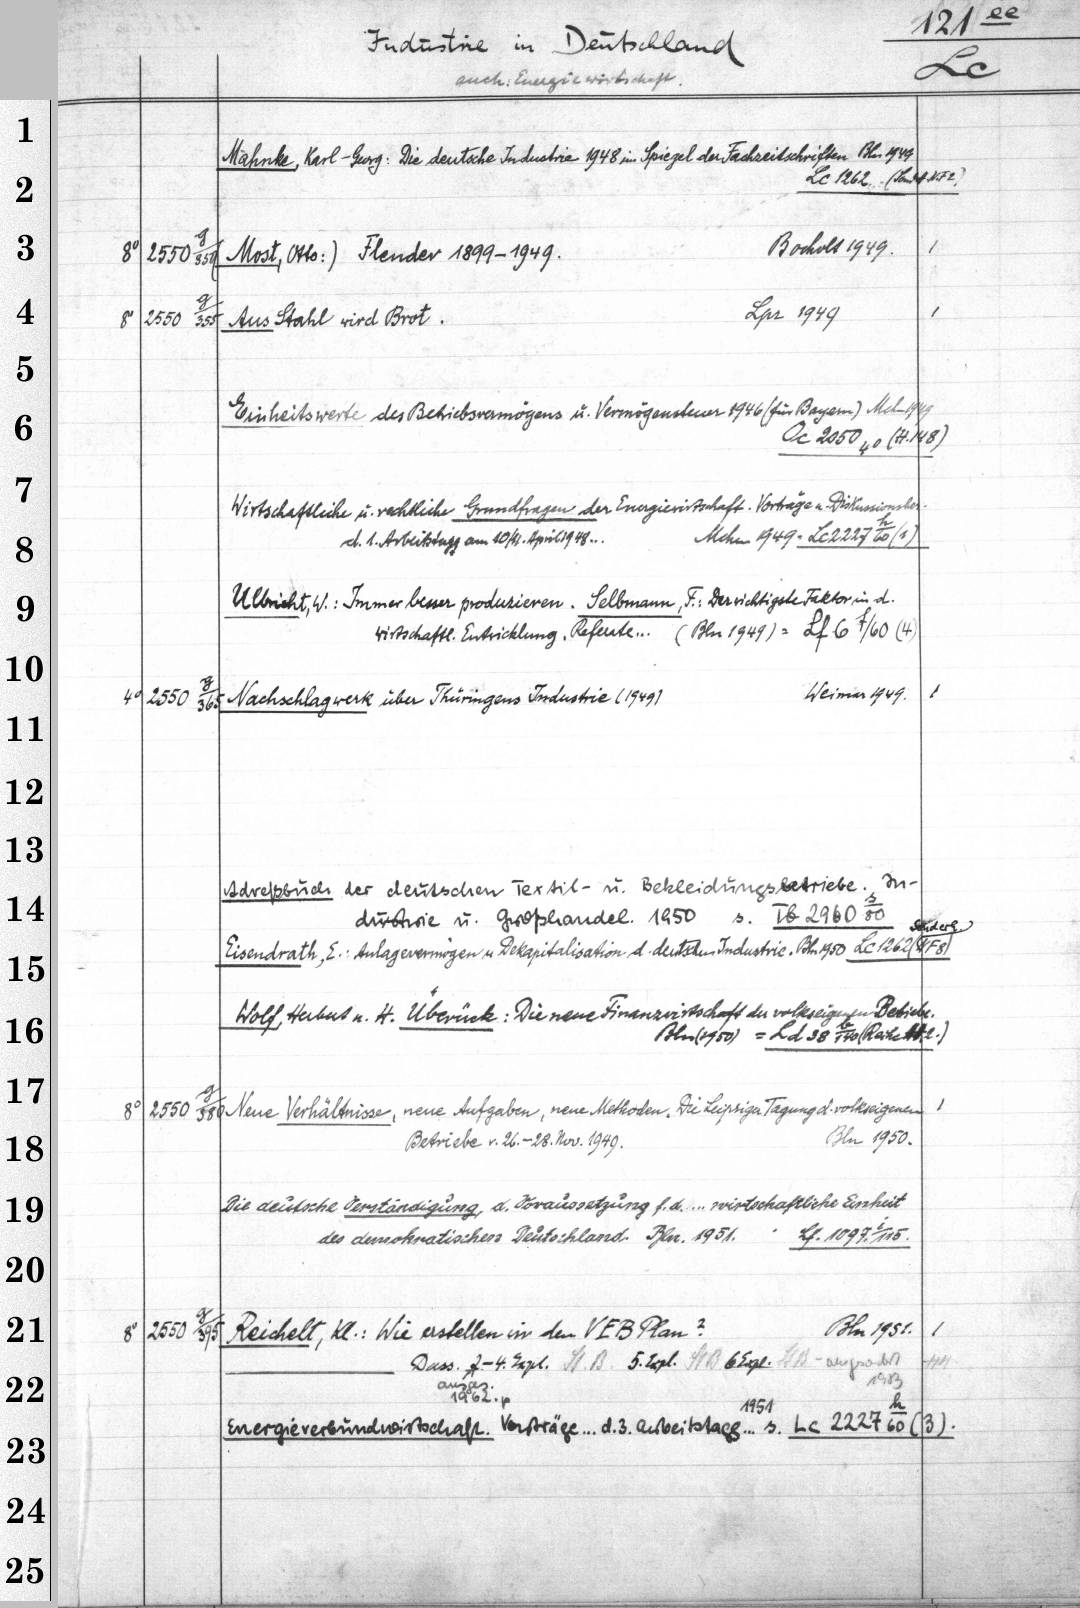 121 ee
Lc
Industrie in Deutschland
auch: Energiewirtschaft.
1
Mahnke, Karl-Georg: Die deutsche Industrie 1948 im Spiegel der Fachzeitschriften Bln 1949
2
Lc 1262
3
8° 2550 g/350 (Most, Otto:) Flender 1899–1949. Bocholt 1949. 1
4
8° 2550 g/355 Aus Stahl wird Brot. Lpz 1949 1
5
Einheitswerte des Betriebsvermögens u. Vermögensteuer 1946 (für Bayern) Mchn 1949
6
Oc 2050 4° (H. 148)
7
Wirtschaftliche u. rechtliche Grundfragen der Energiewirtschaft. Vorträge u. Diskussionsber.
8
d. 1. Arbeitstagg am 10/11. April 1948... Mchn 1949 = Lc 2227 h/60 (1)
9
Ulbricht, W.: Immer besser produzieren. Selbmann, F.: Der wichtigste Faktor in d.
wirtschaftl. Entwicklung. Referate... (Bln 1949) = Lf 6 f/60 (4)
10
4° 2550 g/365 Nachschlagwerk über Thüringens Industrie (1949) Weimar 1949. 1
11
12
13
Adreßbuch der deutschen Textil- u. Bekleidungsbetriebe. In-
14
dustrie u. Großhandel. 1950 s. Tb 2960 s/80
Sonderh.
15
Eisendrath, E.: Anlagevermögen u Dekapitalisation d. deutschen Industrie. Bln 1950 Lc 1262 (NF 8)
Wolf, Herbert u. H. Überück: Die neue Finanzwirtschaft der volkseigenen Betriebe.
16
Bln (1950) = Ld 38 /140 (Reihe 2.)
17
8° 2550 g/380 Neue Verhältnisse, neue Aufgaben, neue Methoden. Die Leipziger Tagung d. volkseigenen 1
18
Betriebe v. 26.–28. Nov. 1949. Bln 1950.
19
Die deutsche Verständigung, d. Voraussetzung f. d. ... wirtschaftliche Einheit
des demokratischen Deutschland. Bln. 1951. Lf. 1097 i/115.
20
21
8° 2550 g/395 Reichelt, Kl.: Wie erstellen wir den VEB Plan? Bln 1951. 1
Dass. 2–4. Expl. St B 5. Expl. St B 6 Expl. St B – ausgesondert
22
ausges. 1983
1962.
1951
23
Energieverbundwirtschaft. Vorträge... d. 3. Arbeitstagg... s. Lc 2227 h/60 (3).
24
25